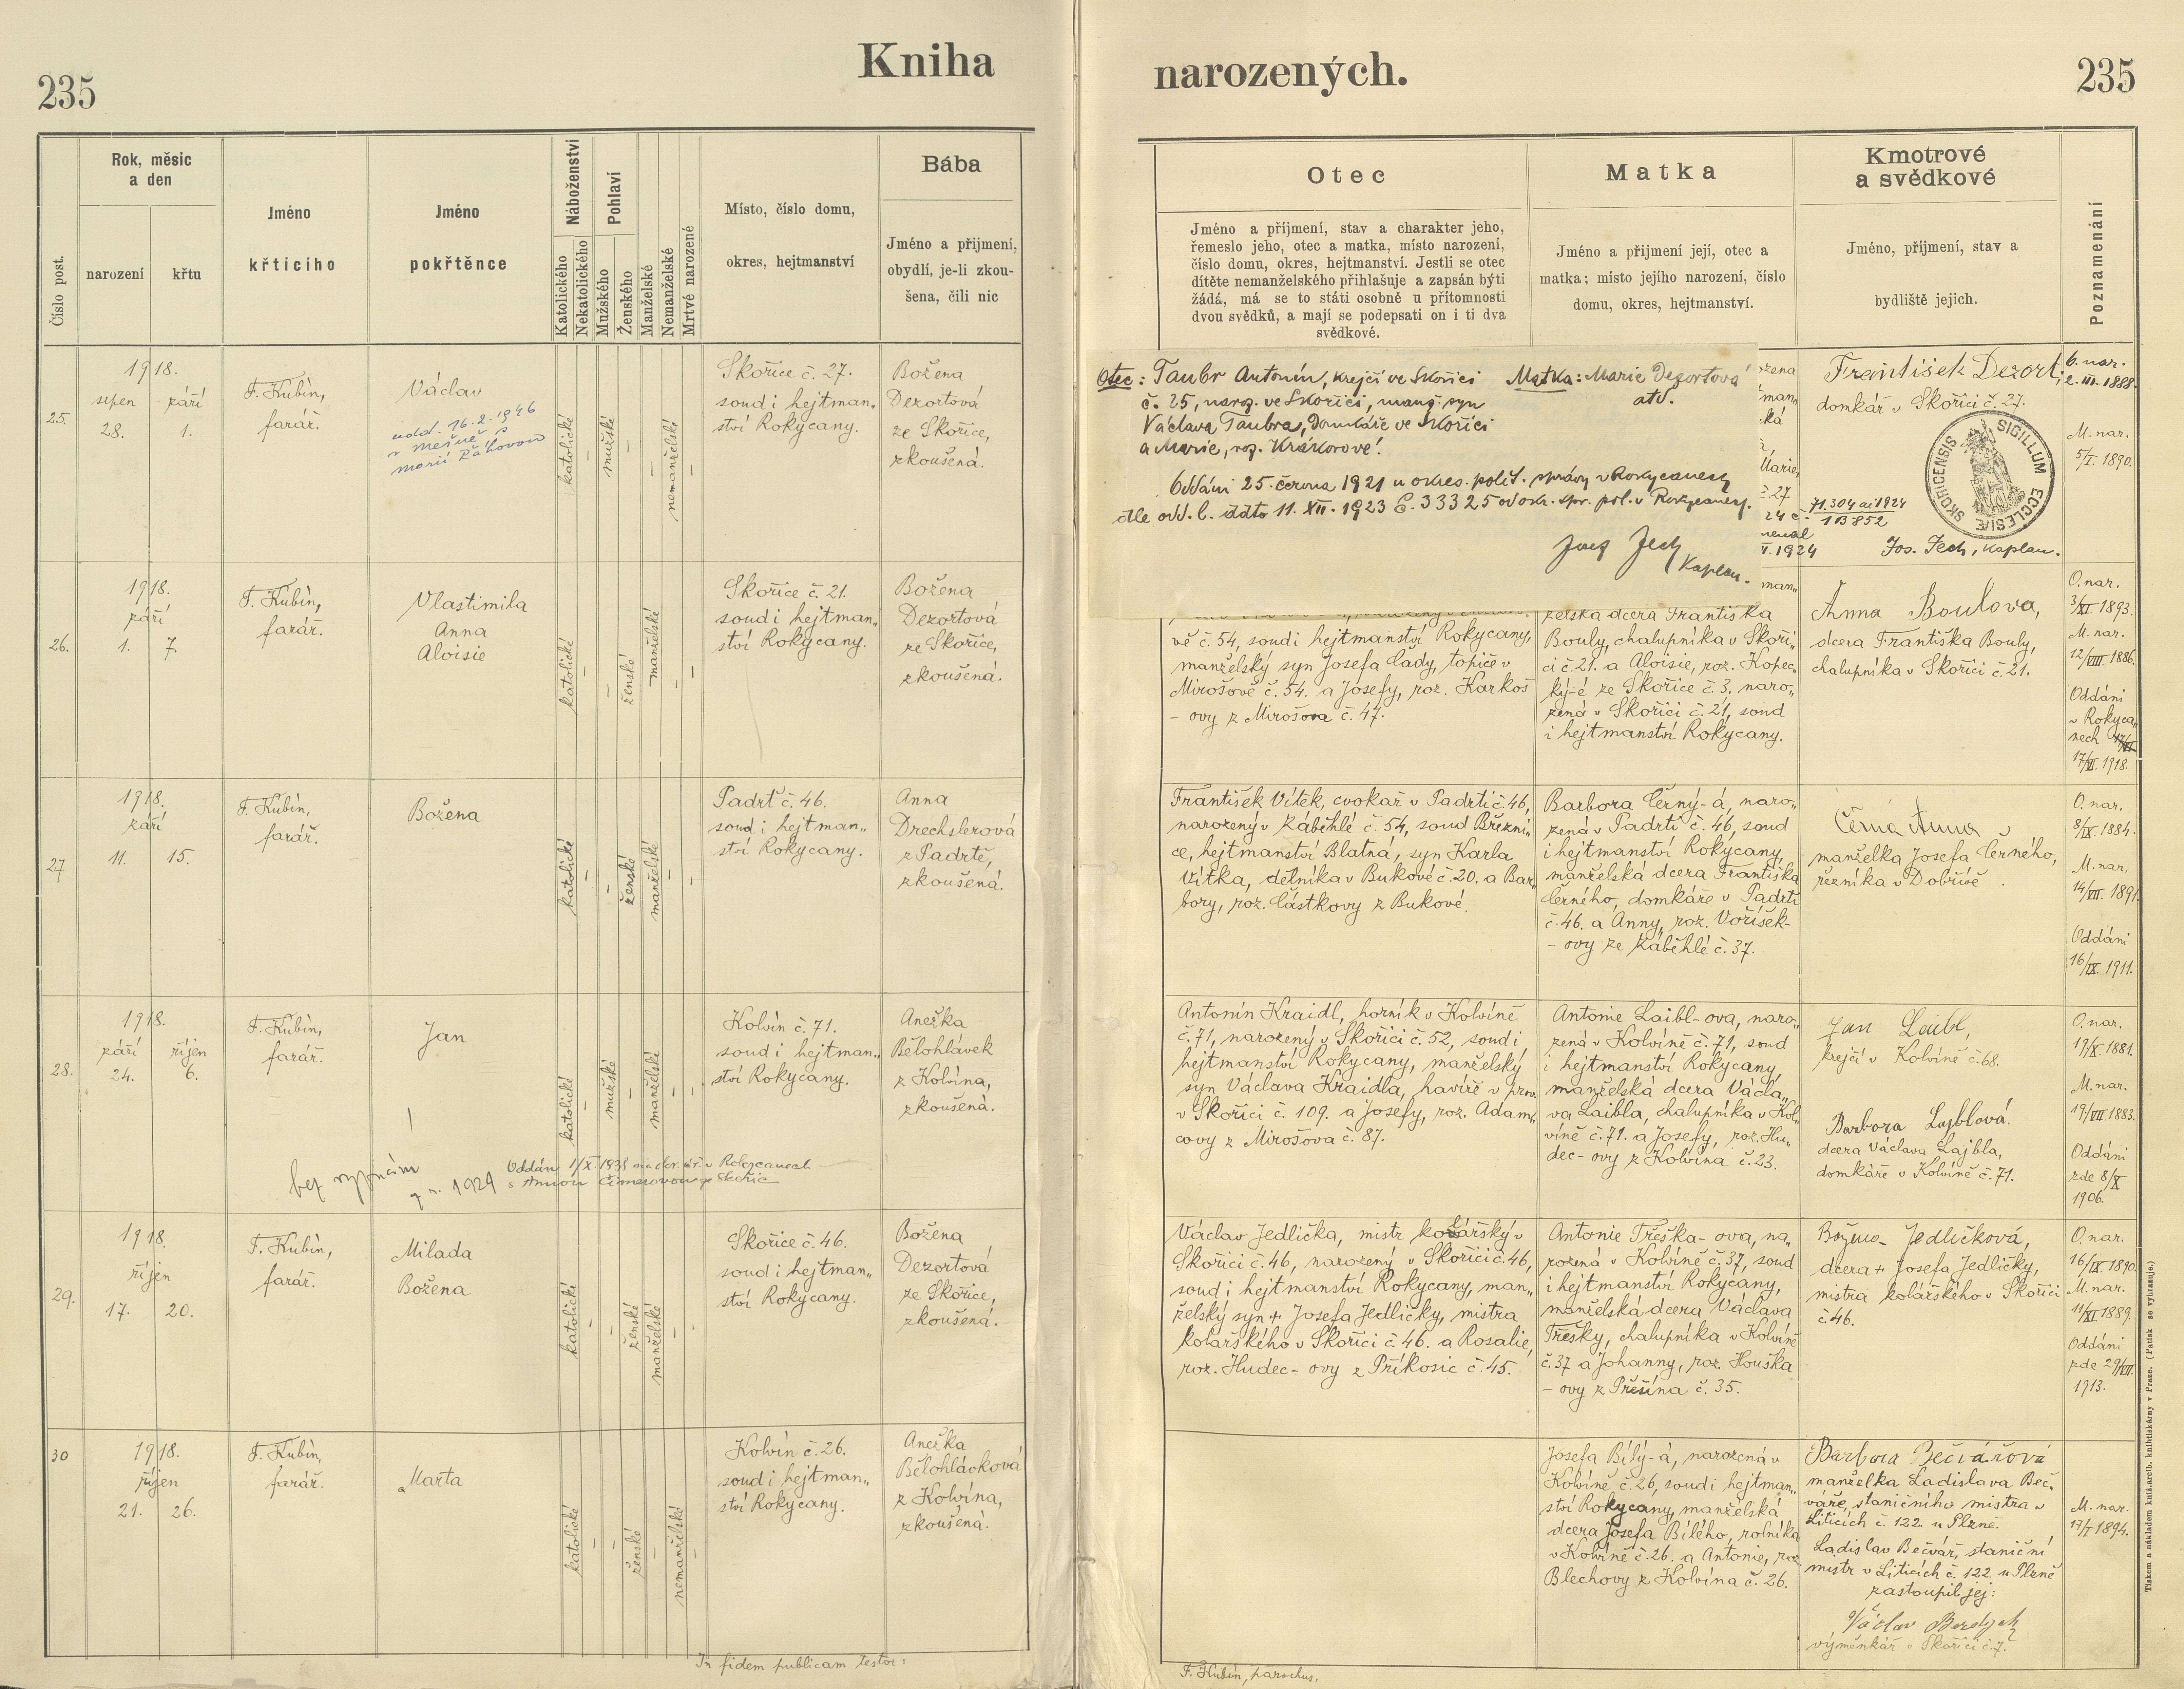 235
Kniha
Číslo post.
Rok, měsíc
a den
narození
křtu
Jméno
křtícího
Jméno
pokřtěnce
Náboženství
Katolického
Nekatolického
Pohlaví
Mužského
Ženského
Manželské
Nemanželské
Mrtvé narozené
Místo, číslo domu,
okres, hejtmanství
Bába
Jméno a příjmení,
obydlí, je-li zkou-
šena, čili nic
25.
1918.
srpen září
28. 1.
F. Kubín,
farář.
Václav
odd. 16.2.1946
v Mešně s
Marií
katolické
–
mužské
–
–
nemanželské
–
Skořice č. 27.
soud i hejtman„
ství Rokycany.
Božena
Dezortová
ze Skořice,
zkoušená.
26.
1918.
září
1. 7.
F. Kubín,
farář.
Vlastimila
Anna
Aloisie
katolické
–
–
ženské
manželské
–
–
Skořice č. 21.
soud i hejtman„
ství Rokycany.
Božena
Dezortová
ze Skořice,
zkoušená.
27
1918.
září
11. 15.
F. Kubín,
farář.
Božena
katolické
–
–
ženské
manželské
–
–
Padrť č. 46.
soud i hejtman„
ství Rokycany.
Anna
Drechslerová
z Padrtě,
zkoušená.
28.
1918.
září říjen
24. 6.
F. Kubín,
farář.
Jan
katolické
–
mužské
–
manželské
–
–
Kolvín č. 71.
soud i hejtman„
ství Rokycany.
Anežka
Bělohlávek
z Kolvína,
zkoušená.
bez vyznání
z r. 1929
Oddán 1/X. 1938 na okr. úř. v Rokycanech
s Annou Cimerovou ze Skořic
29.
1918.
říjen
17. 20.
F. Kubín,
farář.
Milada
Božena
katolické
–
–
ženské
manželské
–
–
Skořice č. 46.
soud i hejtman„
ství Rokycany.
Božena
Dezortová
ze Skořice,
zkoušená.
30
1918.
říjen
21. 26.
F. Kubín,
farář.
Marta
katolické
–
–
ženské
–
nemanželské
–
Kolvín č. 26.
soud i hejtman„
ství Rokycany.
Anežka
Bělohlávková
z Kolvína,
zkoušená.
In fidem publicam testor:
narozených.
235
Otec
Jméno a příjmení, stav a charakter jeho,
řemeslo jeho, otec a matka, místo narození,
číslo domu, okres, hejtmanství. Jestli se otec
dítěte nemanželského přihlašuje a zapsán býti
žádá, má se to státi osobně u přítomnosti
dvou svědků, a mají se podepsati on i ti dva
svědkové.
Matka
Jméno a příjmení její, otec a
matka; místo jejího narození, číslo
domu, okres, hejtmanství.
Kmotrové
a svědkové
Jméno, příjmení, stav a
bydliště jejich.
Poznamenání
Otec: Taubr Antonín, krejčí ve Skořici
č. 25, naroz. ve Skořici, manž. syn
Václava Taubra, domkáře ve Skořici
a Marie, roz. Krákorové!
Matka: Marie Dezortová
atd.
Oddáni 25. června 1921 u okres. polit. správy v Rokycanech
dle odd. l. ddto 11. XII. 1923 č. 33325 od okr. spr. pol. v Rokycanech.
Josef Jech
Kaplan.
František Dezort,
domkář v Skořici č. 27.
71.304 ai 1924
113852
SIGILLUM ECCLESIÆ SKORICENSIS
Jos. Jech, Kaplan.
nar.
1888.
M. nar.
5/I. 1890.
vě č. 54, soud i hejtmanství Rokycany,
manželský syn Josefa Cády, topiče v
Mirošově č. 54. a Josefy, roz. Karkoš
– ovy z Mirošova č. 47.
želská dcera Františka
Bouly, chalupníka v Skoři„
ci č. 21. a Aloisie, roz. Kopec„
ký-é ze Skořice č. 3. naro„
zená v Skořici č. 21, soud
i hejtmanství Rokycany.
Anna Boulova,
dcera Františka Bouly,
chalupníka v Skořici č. 21.
O. nar.
3/XI 1893.
M. nar.
12/VIII 1886.
Oddáni
v Rokyca„
nech
17/VI. 1918.
František Vítek, cvokař v Padrti č. 46,
narozený v Záběhlé č. 54, soud Březni„
ce, hejtmanství Blatná, syn Karla
Vítka, dělníka v Bukové č. 20. a Bar„
bory, roz. Částkovy z Bukové.
Barbora Černý-á, naro„
zená v Padrti č. 46, soud
i hejtmanství Rokycany,
manželská dcera Františka
Černého, domkáře v Padrti
č. 46. a Anny, roz. Voříšek-
– ovy ze Záběhlé č. 37.
Černá Anna
manželka Josefa Černého,
řezníka v Dobříši.
O. nar.
8/IX. 1884.
M. nar.
14/VII. 1891.
Oddáni
16/IX 1911.
Antonín Kraidl, horník v Kolvíně
č. 71, narozený v Skořici č. 52, soud i
hejtmanství Rokycany, manželský
syn Václava Kraidla, havíře v prov.
v Skořici č. 109. a Josefy, roz. Adam„
covy z Mirošova č. 87.
Antonie Laibl-ova, naro„
zená v Kolvíně č. 71, soud
i hejtmanství Rokycany,
manželská dcera Václa„
va Laibla, chalupníka v Kol„
víně č. 71. a Josefy, roz. Hu„
dec- ovy z Kolvína č. 23.
Jan Laibl,
krejčí v Kolvíně č. 68.
Barbora Lajblová.
dcera Václava Lajbla,
domkáře v Kolvíně č. 71.
O. nar.
19/X. 1881.
M. nar.
19/VIII 1883.
Oddáni
zde 8/X
1906.
Václav Jedlička, mistr kolářský v
Skořici č. 46, narozený v Skořici č. 46,
soud i hejtmanství Rokycany, man„
želský syn + Josefa Jedličky, mistra
kolářského v Skořici č. 46. a Rosalie,
roz. Hudec- ovy z Příkosic č. 45.
Antonie Třeška- ova, na„
rozená v Kolvíně č. 37, soud
i hejtmanství Rokycany,
manželská dcera Václava
Třešky, chalupníka v Kolvíně
č. 37 a Johanny, roz. Houška
– ovy z Přešína č. 35.
Božena Jedličková,
dcera + Josefa Jedličky,
mistra kolářského v Skořici
č. 46.
O. nar.
16/IX 1890.
M. nar.
11/XI 1889.
Oddáni
zde 29/VII.
1913.
Josefa Bílý-á, narozená v
Kolvíně č. 26, soud i hejtman„
ství Rokycany, manželská
dcera Josefa Bílého, rolníka
v Kolvíně č. 26. a Antonie, roz.
Blechovy z Kolvína č. 26.
Barbora Bečvářová
manželka Ladislava Beč„
váře, staničního mistra v
Liticích č. 122. u Plzně.
Ladislav Bečvář, staniční
mistr v Liticích č. 122. u Plzně
zastoupil jej:
Václav
výměnkář v Skořici č. 7.
M. nar.
17/I 1894.
F. Kubín, parochus.
Tiskem a nákladem kníž. arcib. knihtiskárny v Praze. (Patisk se vyhrazuje.)